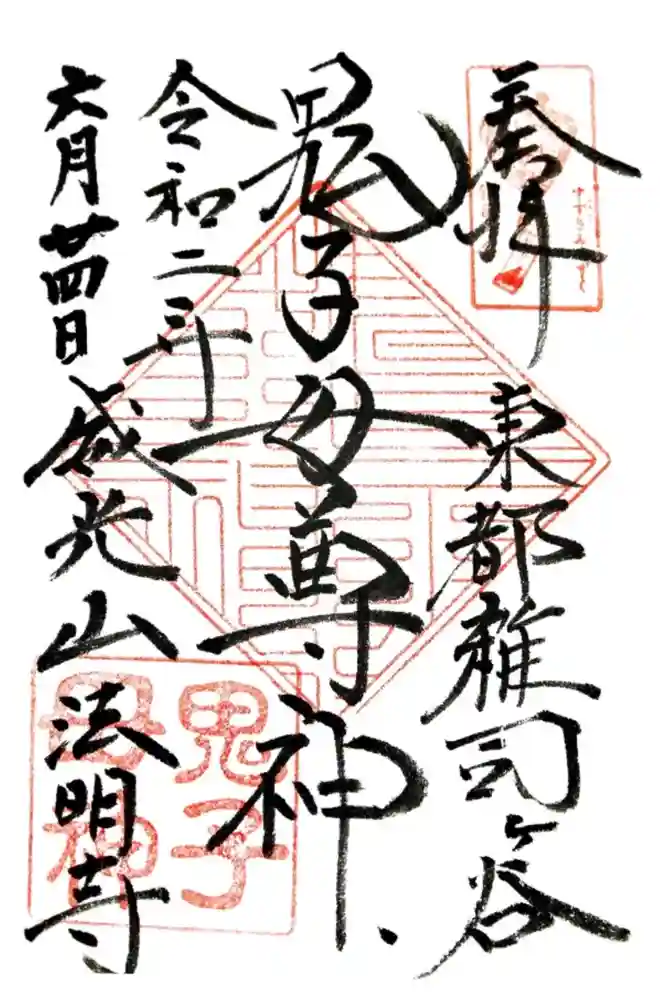 奉拝
東都雑司ヶ谷
鬼子母尊神
令和二年
六月廿四日
威光山
法明寺
鬼子
母神